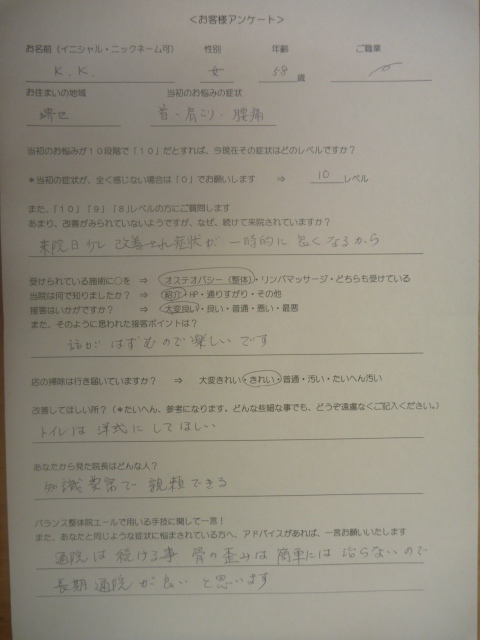 <お客様アンケート>
お名前（イニシャル・ニックネーム可） 性別 年齢 ご職業
K.K. 女 58 歳
お住まいの地域 当初のお悩みの症状
堺市 首・肩こり・腰痛
当初のお悩みが10段階で「10」だとすれば、今現在その症状はどのレベルですか？
＊当初の症状が、全く感じない場合は「0」でお願いします ⇒ 10 レベル
また、「10」「9」「8」レベルの方にご質問します
あまり、改善がみられていないようですが、なぜ、続けて来院されていますか？
来院日少し改善され症状が一時的に良くなるから
受けられている施術に○を ⇒ オステオパシー（整体）・リンパマッサージ・どちらも受けている
当院は何で知りましたか？ ⇒ 紹介・HP・通りすがり・その他
接客はいかがですか？ ⇒ 大変良い・良い・普通・悪い・最悪
また、そのように思われた接客ポイントは？
話がはずむので楽しいです
店の掃除は行き届いていますか？ ⇒ 大変きれい・きれい・普通・汚い・たいへん汚い
改善してほしい所？（＊たいへん、参考になります。どんな些細な事でも、どうぞ遠慮なくご記入ください。）
トイレは洋式にしてほしい
あなたから見た院長はどんな人？
知識豊富で親頼できる
バランス整体院エールで用いる手技に関して一言！
また、あなたと同じような症状に悩まされている方へ、アドバイスがあれば、一言お願いいたします
通院は続ける事 骨の歪みは簡単には治らないので
長期通院が良いと思います